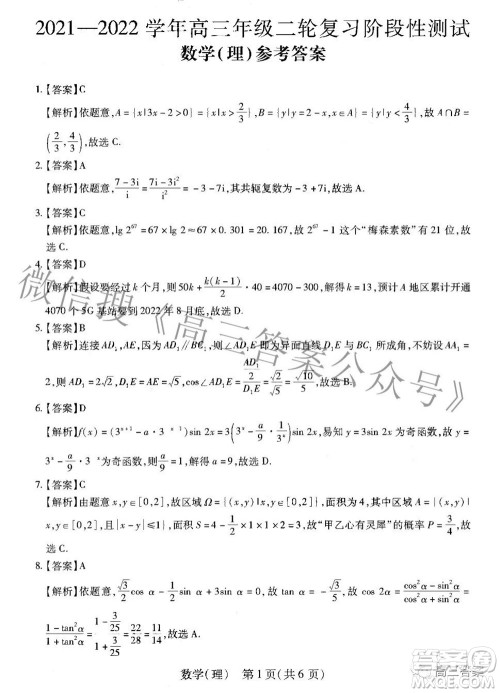 2021—2022 学年高三年级二轮复习阶段性测试
数学(理)参考答案
1.【答案】C
【解析】依题意,A={x|3x-2>0}={x|x>2/3},B={y|y=2-x,x∈A}={y|y<4/3},故 A∩B=
(2/3,4/3),故选 C.
2.【答案】A
【解析】依题意,(7-3i)/i=(7i-3i²)/i²=-3-7i,其共轭复数为-3+7i,故选 A.
3.【答案】C
【解析】依题意,lg 2^67=67×lg 2≈67×0.3=20.1,故可估计 2^67-1 这个“梅森素数”有 21 位,故
选 C.
4.【答案】D
【解析】假设要经过 k 个月,则 50k+k(k-1)/2·40=4070,解得 k=10,故预计 A 地区累计开通
4070 个 5G 基站要到 2022 年 8 月底,故选 D.
5.【答案】B
【解析】连接 AD₁,AE,因为 AD₁∥BC₁,故∠AD₁E 即为直线 D₁E 与 BC₁ 所成角,不妨设 AA₁=
2,则 AD₁=2√2,D₁E=AE=√5,cos∠AD₁E=(AD₁/2)/D₁E=√2/√5=√10/5,故选 B.
6.【答案】D
【解析】f(x)=(3^(x+1)-a·3^(-x-2))sin 2x=3(3^x-a/9·3^(-x-1))sin 2x 为奇函数,则
3^x-a/9·3^(-x-1)为偶函数,
7.【答案】C
【解析】由题意 x,y∈[0,2],故区域 Ω={(x,y)|x,y∈[0,2]},满足“心有灵犀”的区域 A={(x,y)|x,y
∈[0,2],且|x-y|≤1},所以|Ω|=4,|A|=4-1/2-1/2=3,所以“甲乙心有灵犀”的概率 P=3/4,故
选 C.
8.【答案】B
【解析】依题意,√3/2 cos α-1/2 sin α+3sin α=0,故 tan α=-√3/5,故 cos 2α=(cos²α-sin²α)/(cos²α+sin²α)=
(1-tan²α)/(1+tan²α)=(1-3/25)/(1+3/25)=22/28=11/14,故选 B.
数学(理) 第 1 页(共 6 页)
微信搜《高三答案公众号》
高三答案